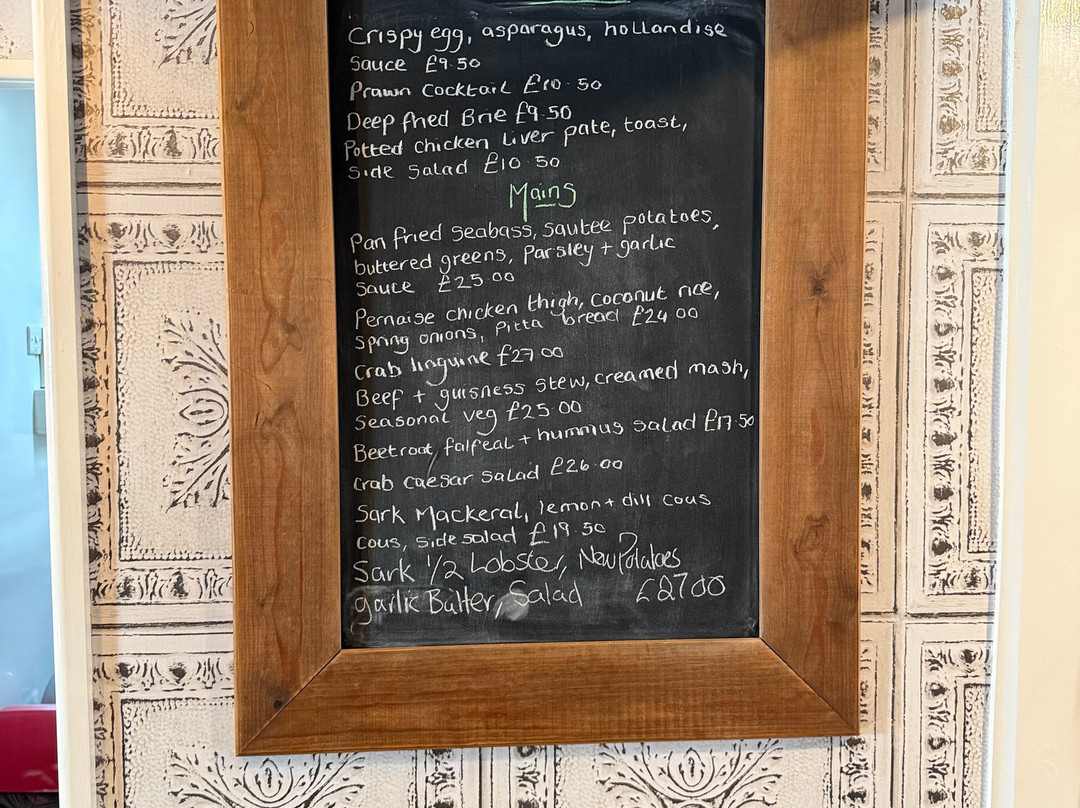 Crispy egg, asparagus, hollandise
Sauce £9.50
Prawn Cocktail £10.50
Deep fried Brie £9.50
Potted chicken Liver pate, toast,
Side Salad £10.50
Mains
Pan fried Seabass, Sautee potatoes,
buttered greens, Parsley + garlic
Sauce £25.00
Pernaise chicken thigh, Coconut rice,
Spring onions, Pitta bread £24.00
Crab linguine £27.00
Beef + guisness stew, creamed mash,
Seasonal veg £25.00
Beetroot, falfeal + hummus salad £17.50
Crab Caesar Salad £26.00
Sark Mackeral, lemon + dill cous
cous, side salad £19.50
Sark 1/2 Lobster, New Potatoes
garlic Butter, Salad £27.00